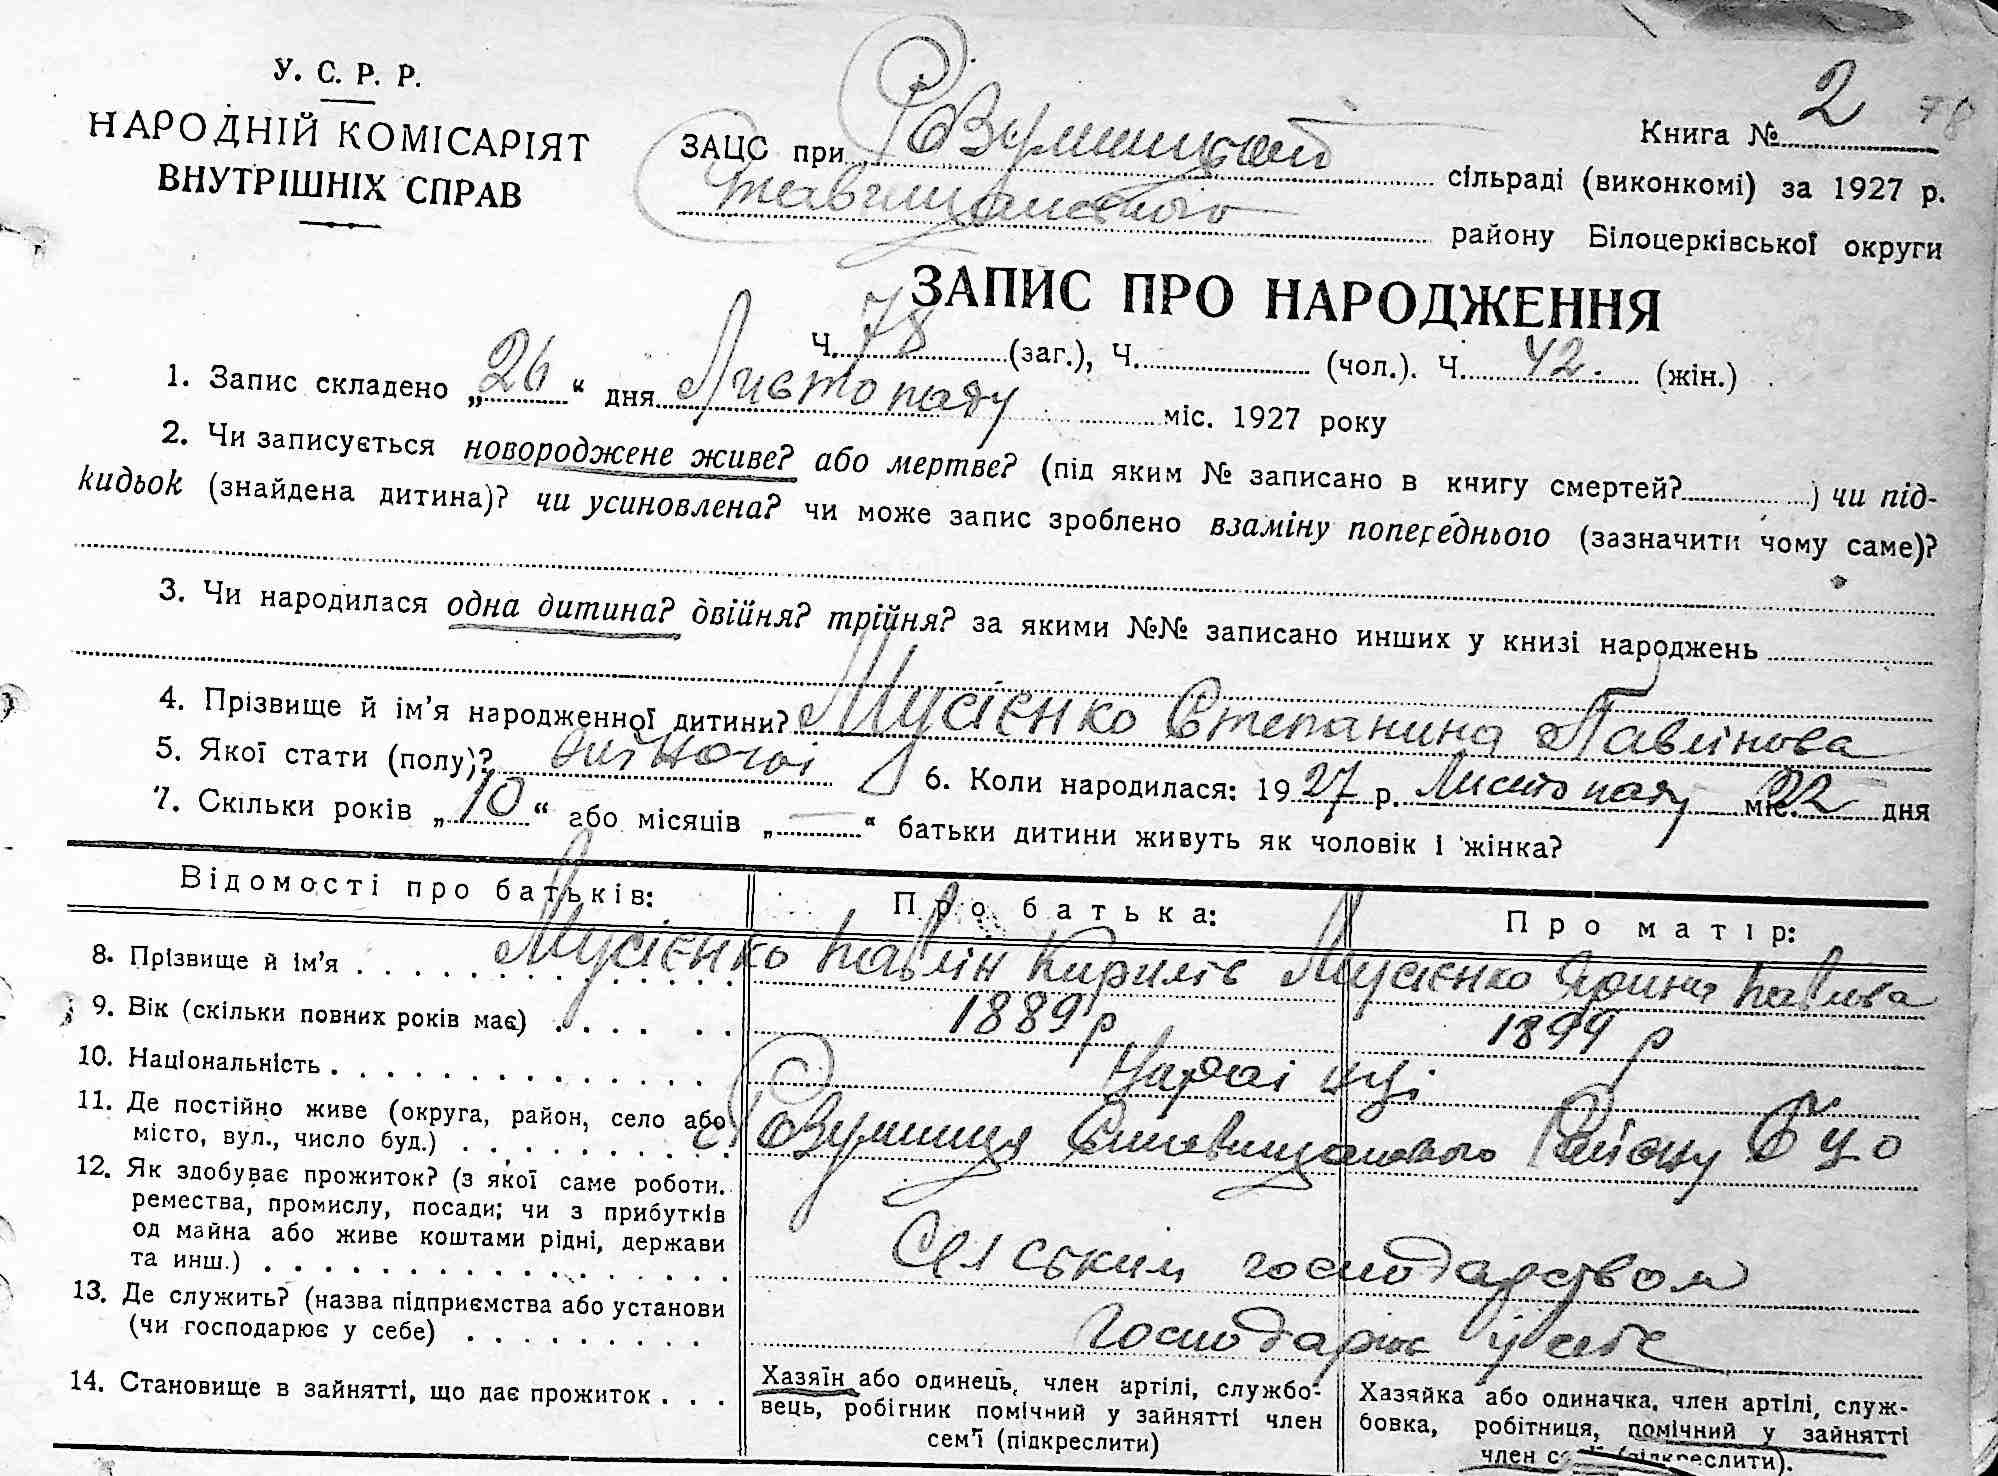 У. С. Р. Р.
НАРОДНІЙ КОМІСАРІЯТ
ВНУТРІШНІХ СПРАВ
Книга № 2 78
ЗАЦС при Розумницкой сільраді (виконкомі) за 1927 р.
Ставищанського району Білоцерківської округи
ЗАПИС ПРО НАРОДЖЕННЯ
Ч. 78 (заг.), Ч. (чол.). Ч. 42. (жін.)
1. Запис складено „26“ дня Листопаду міс. 1927 року
2. Чи записується новороджене живе? або мертве? (під яким № записано в книгу смертей? ) чи під-
кидьок (знайдена дитина)? чи усиновлена? чи може запис зроблено взаміну попереднього (зазначити чому саме)?
3. Чи народилася одна дитина? двійня? трійня? за якими №№ записано инших у книзі народжень
4. Прізвище й ім’я народженної дитини? Мусієнко Степанина Павлінова
5. Якої стати (полу)? 6. Коли народилася: 1927 р. Листопаду міс. 22 дня
7. Скільки років „10“ або місяців „—“ батьки дитини живуть як чоловік і жінка?
Відомості про батьків: Про батька: Про матір:
8. Прізвище й ім’я . . . . . Мусієнко Павлін Кирилів Мусієнко Ярина Павлова
9. Вік (скільки повних років має) . . . . . . 1889 р 1894 р
10. Національність . . . . . . . . . . . . . . Українці
11. Де постійно живе (округа, район, село або
місто, вул., число буд.) . . . . . . . . . . . Розумниця Ставищанського Району БЦО
12. Як здобуває прожиток? (з якої саме роботи.
ремества, промислу, посади; чи з прибутків
од майна або живе коштами рідні, держави
та инш.) . . . . . . . . . . . . . . . . . Сільським господарством
13. Де служить? (назва підприємства або установи
(чи господарює у себе) . . . . . . . . . Господарює у себе
14. Становище в зайнятті, що дає прожиток . . .
Хазяїн або одинець, член артілі, службо-
вець, робітник помічний у зайнятті член
сем’ї (підкреслити)
Хазяйка або одиначка, член артілі, служ-
бовка, робітниця, помічний у зайнятті
член (підкреслити).